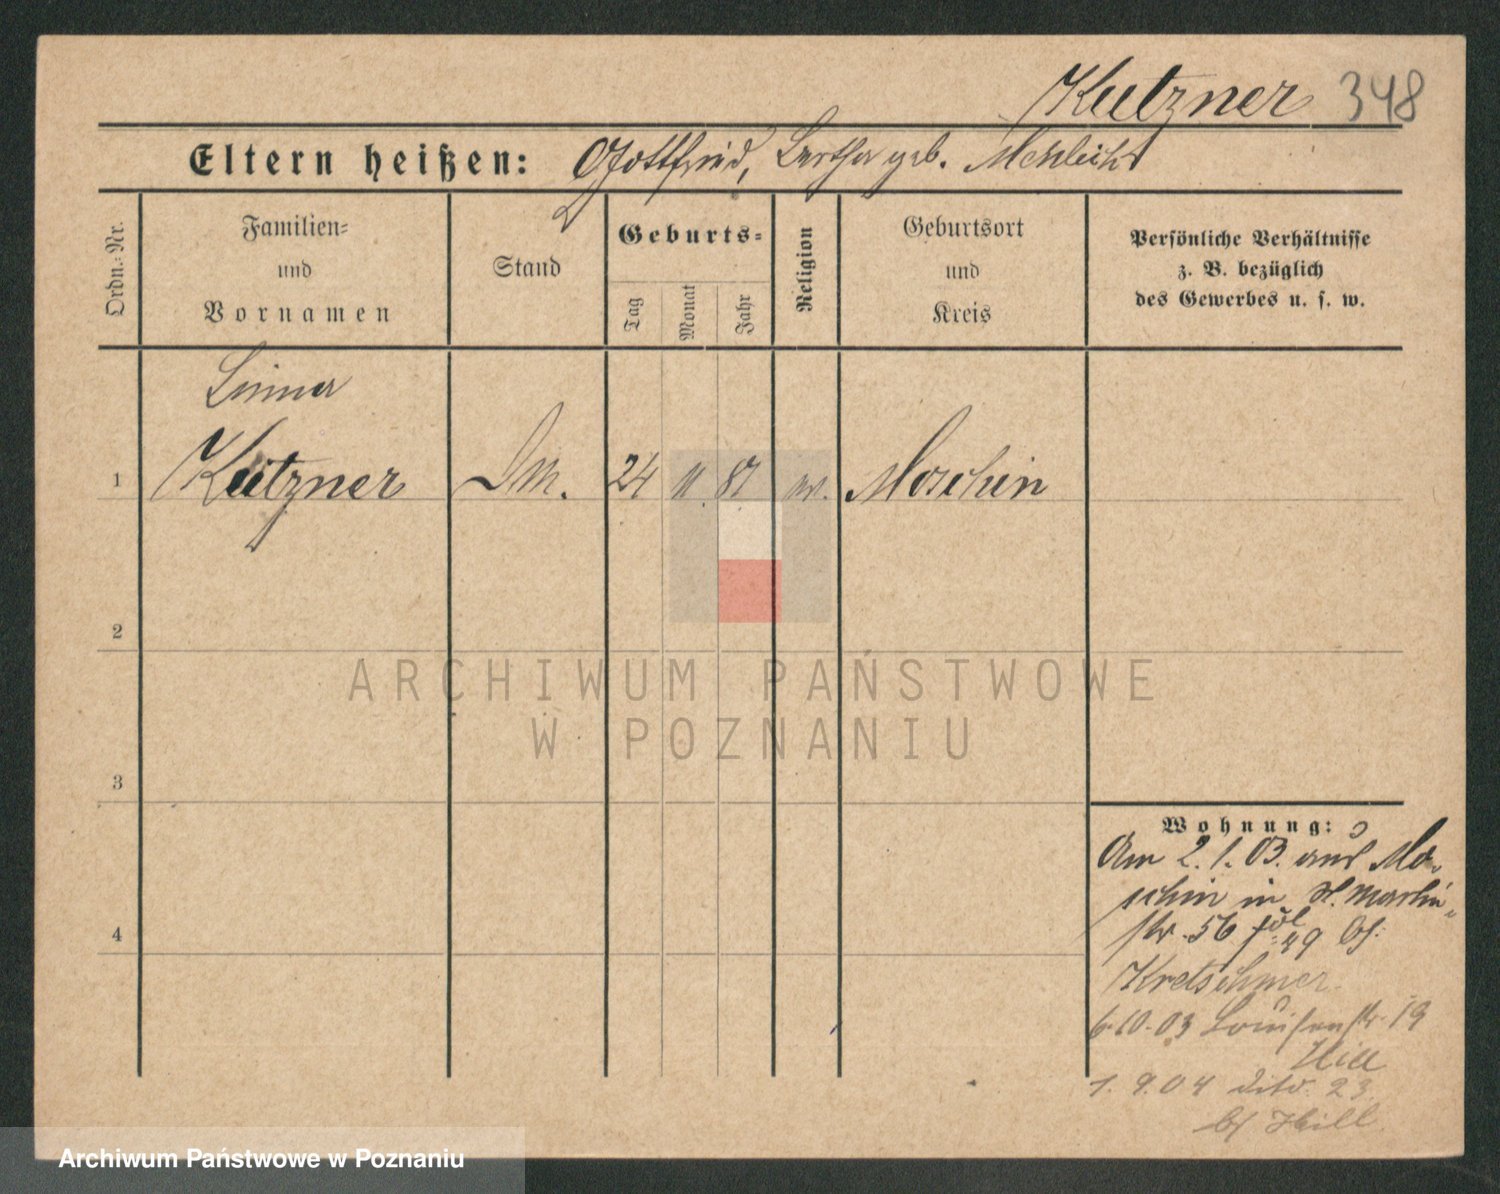 Kutzner 348
Eltern heißen: Gottfried, Bertha geb.
Familien=
und
Vornamen
Stand
Geburts=
Tag
Monat
Jahr
Religion
Geburtsort
und
Kreis
Persönliche Verhältnisse
z. B. bezüglich
des Gewerbes u. s. w.
Ordn.=Nr.
1
Kutzner
24 11 87 ev. Moschin
2
3
4
Wohnung:
Am 2.1.03. aus Mo-
schin in St. Martin-
str. 56
Kretschmer
6.10.03 Louisenstr. 19
Hill
1.9.04 dito. 23
bei Hill
ARCHIWUM PAŃSTWOWE
W POZNANIU
Archiwum Państwowe w Poznaniu